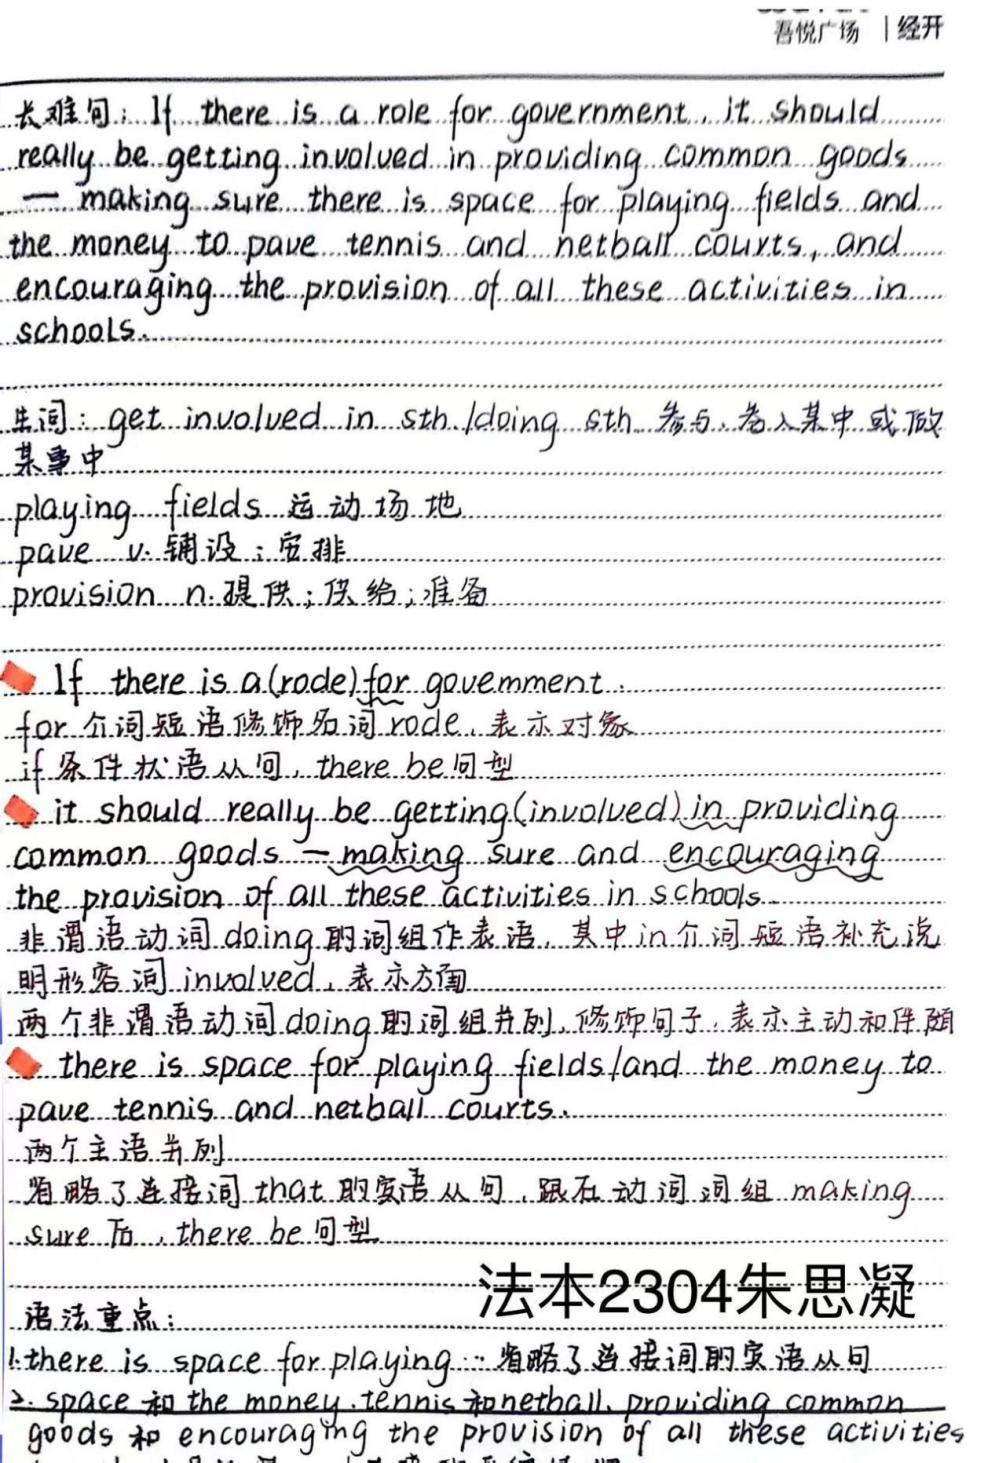 吾悦广场 | 经开
长难句: If there is a role for government, it should
really be getting involved in providing common goods
— making sure there is space for playing fields and
the money to pave tennis and netball courts, and
encouraging the provision of all these activities in
schools.
生词: get involved in sth./doing sth 参与、卷入某中或做
某事中
playing fields 运动场地
pave v. 铺设; 安排
provision n. 提供; 供给; 准备
If there is a(rode) for govemment.
for 介词短语修饰名词 rode, 表示对象
if 条件状语从句, there be 句型
it should really be getting(involved) in providing
common goods — making sure and encouraging
the provision of all these activities in schools.
非谓语动词 doing 的词组作表语, 其中 in 介词短语补充说
明形容词 involved, 表示方面
两个非谓语动词 doing 的词组并列, 修饰句子, 表示主动和伴随
there is space for playing fields/and the money to
pave tennis and netball courts.
两个主语并列
省略了连接词 that 的宾语从句, 跟在动词词组 making
sure 后, there be 句型
法本2304朱思凝
语法重点:
1. there is space for playing… 省略了连接词的宾语从句
2. space 和 the money、tennis 和 netball、providing common
goods 和 encouraging the provision of all these activities